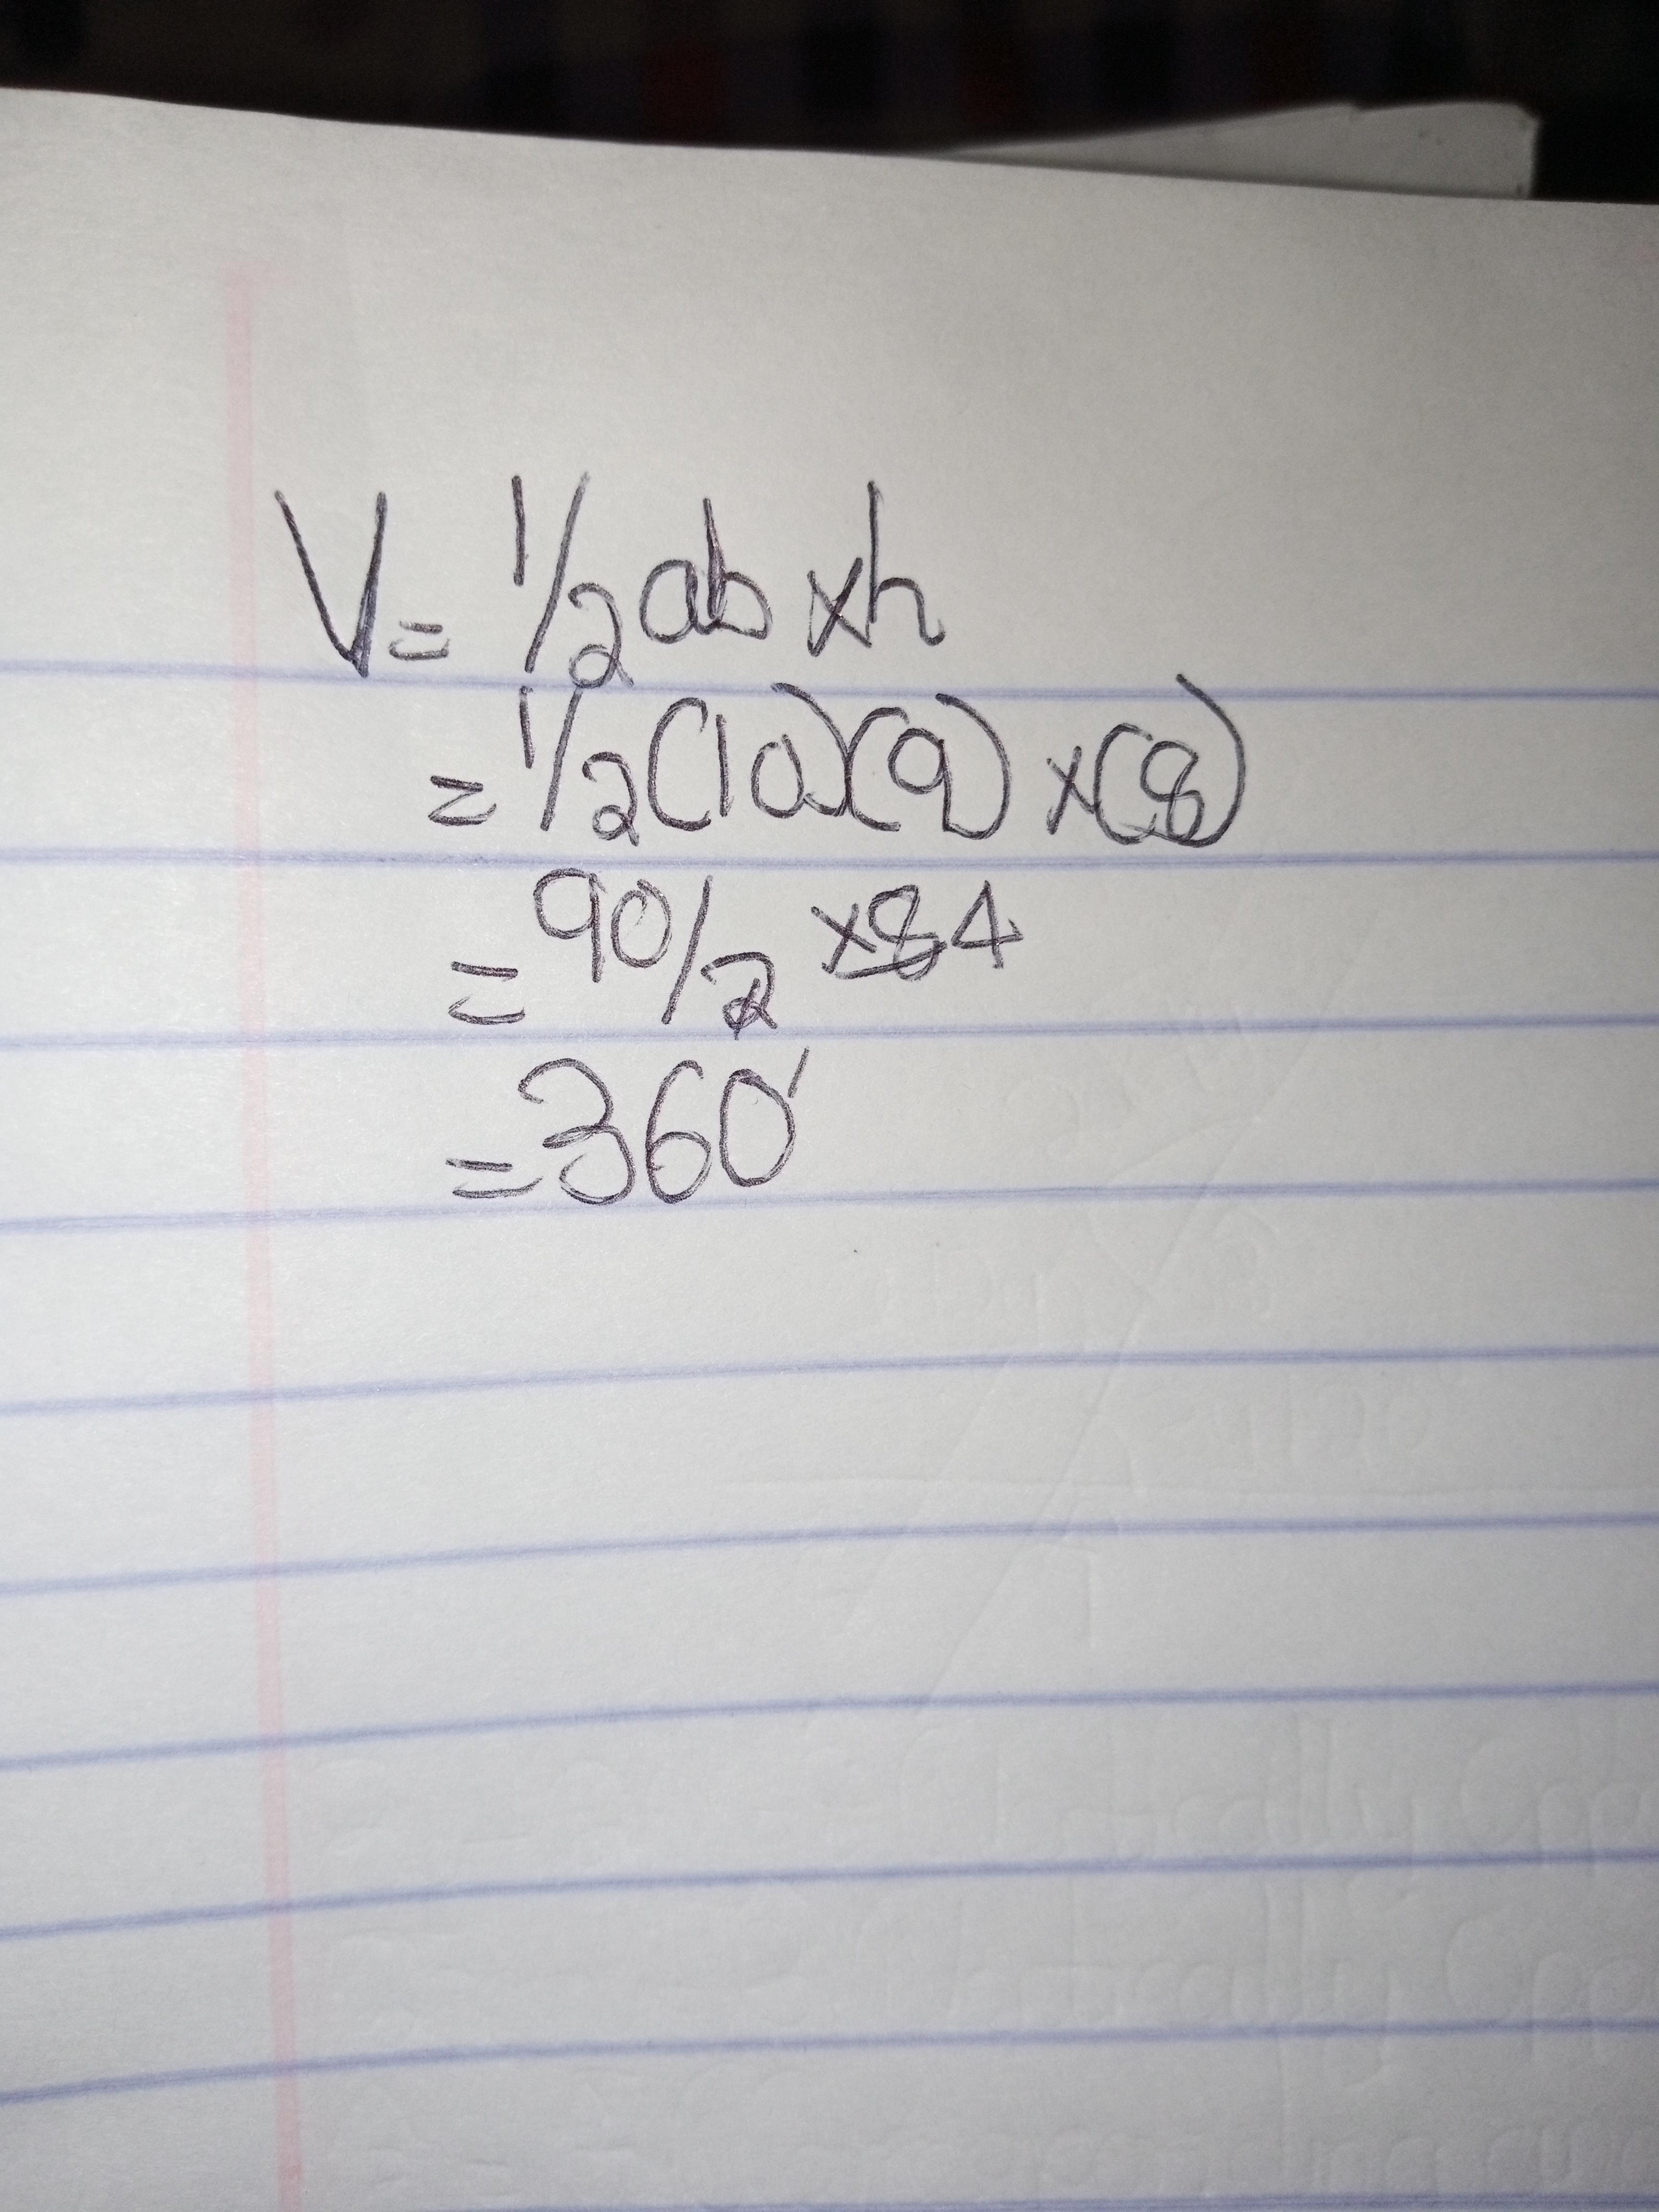 V = 1/2 ab x h
= 1/2 (10)(9) x (8)
= 90/2 x 8 4
= 360